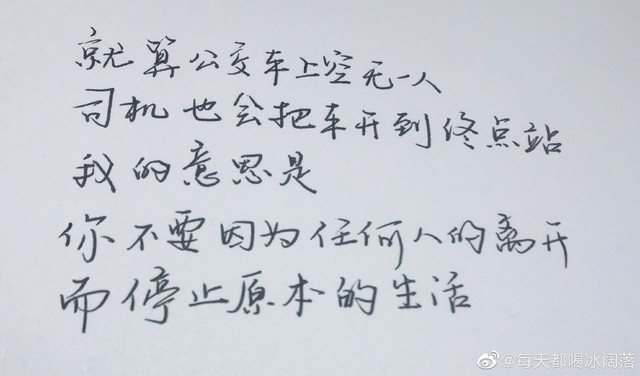 就算公交车上空无一人
司机也会把车开到终点站
我的意思是
你不要因为任何人的离开
而停止原本的生活
@每天都喝冰阔落